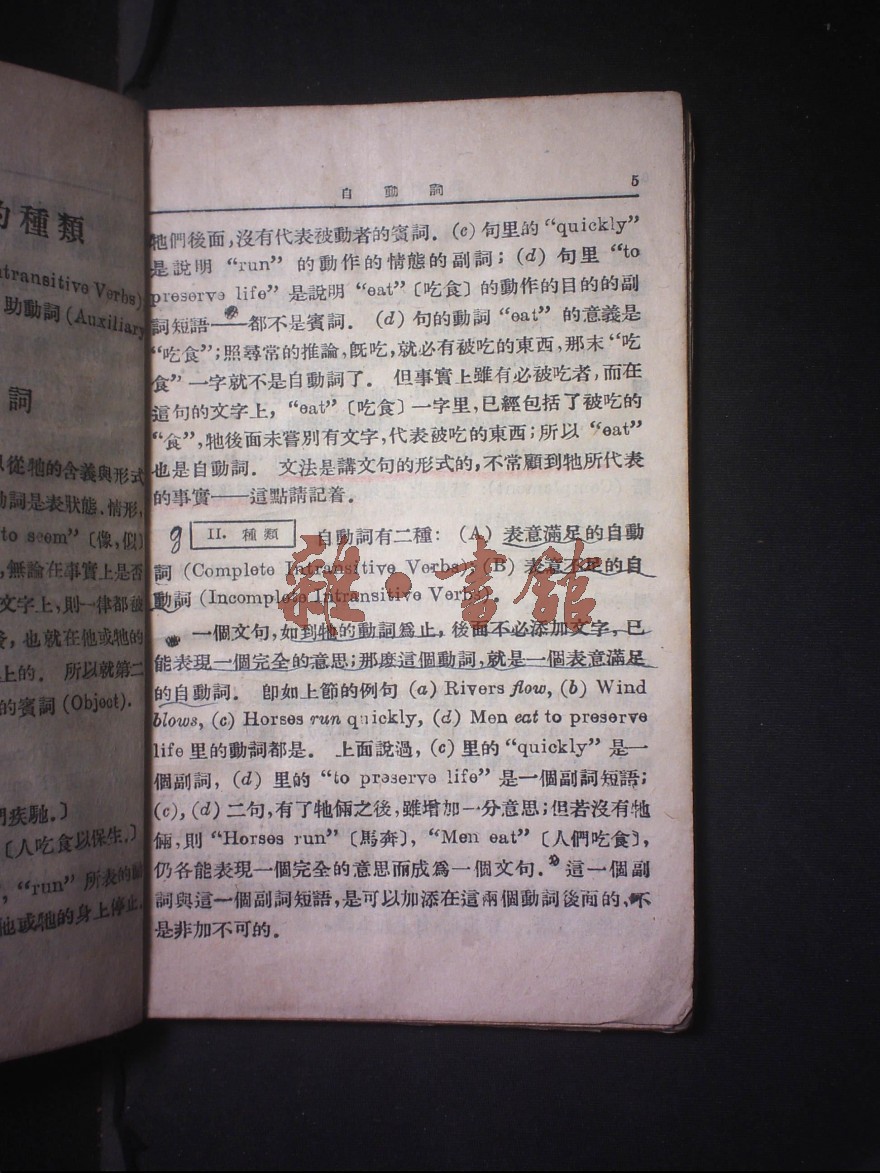 的種類
ntransitive Verbs)
助動詞 (Auxiliary
詞
從牠的含義與形式
動詞是表狀態、情形,
"to seem"〔像,似〕
,無論在事實上是否
文字上,則一律都
,也就在他或牠的
上的. 所以就第二
的賓詞 (Object).
疾馳.〕
〔人吃食以保生.〕
, "run" 所表的動
他或牠的身上停止.
自動詞 5
牠們後面,沒有代表被動者的賓詞. (c) 句里的 "quickly"
是說明 "run" 的動作的情態的副詞; (d) 句里 "to
preserve life" 是說明 "eat"〔吃食〕的動作的目的的副
詞短語——都不是賓詞. (d) 句的動詞 "eat" 的意義是
"吃食";照尋常的推論,旣吃,就必有被吃的東西,那末 "吃
食" 一字就不是自動詞了. 但事實上雖有必被吃者,而在
這句的文字上, "eat"〔吃食〕一字里,已經包括了被吃的
"食",牠後面未嘗別有文字,代表被吃的東西;所以 "eat"
也是自動詞. 文法是講文句的形式的,不常顧到牠所代表
的事實——這點請記着.
II. 種類 自動詞有二種: (A) 表意滿足的自動
詞 (Complete Intransitive Verbs); (B) 表意不足的自
動詞 (Incomplete Intransitive Verbs).
一個文句,如到牠的動詞爲止,後面不必添加文字,已
能表現一個完全的意思;那麼這個動詞,就是一個表意滿足
的自動詞. 卽如上節的例句 (a) Rivers flow, (b) Wind
blows, (c) Horses run quickly, (d) Men eat to preserve
life 里的動詞都是. 上面說過, (c) 里的 "quickly" 是一
個副詞, (d) 里的 "to preserve life" 是一個副詞短語;
(c), (d) 二句,有了牠倆之後,雖增加一分意思;但若沒有牠
倆,則 "Horses run"〔馬奔〕, "Men eat"〔人們吃食〕,
仍各能表現一個完全的意思而成爲一個文句. 這一個副
詞與這一個副詞短語,是可以加添在這兩個動詞後面的,不
是非加不可的.
雜·書館